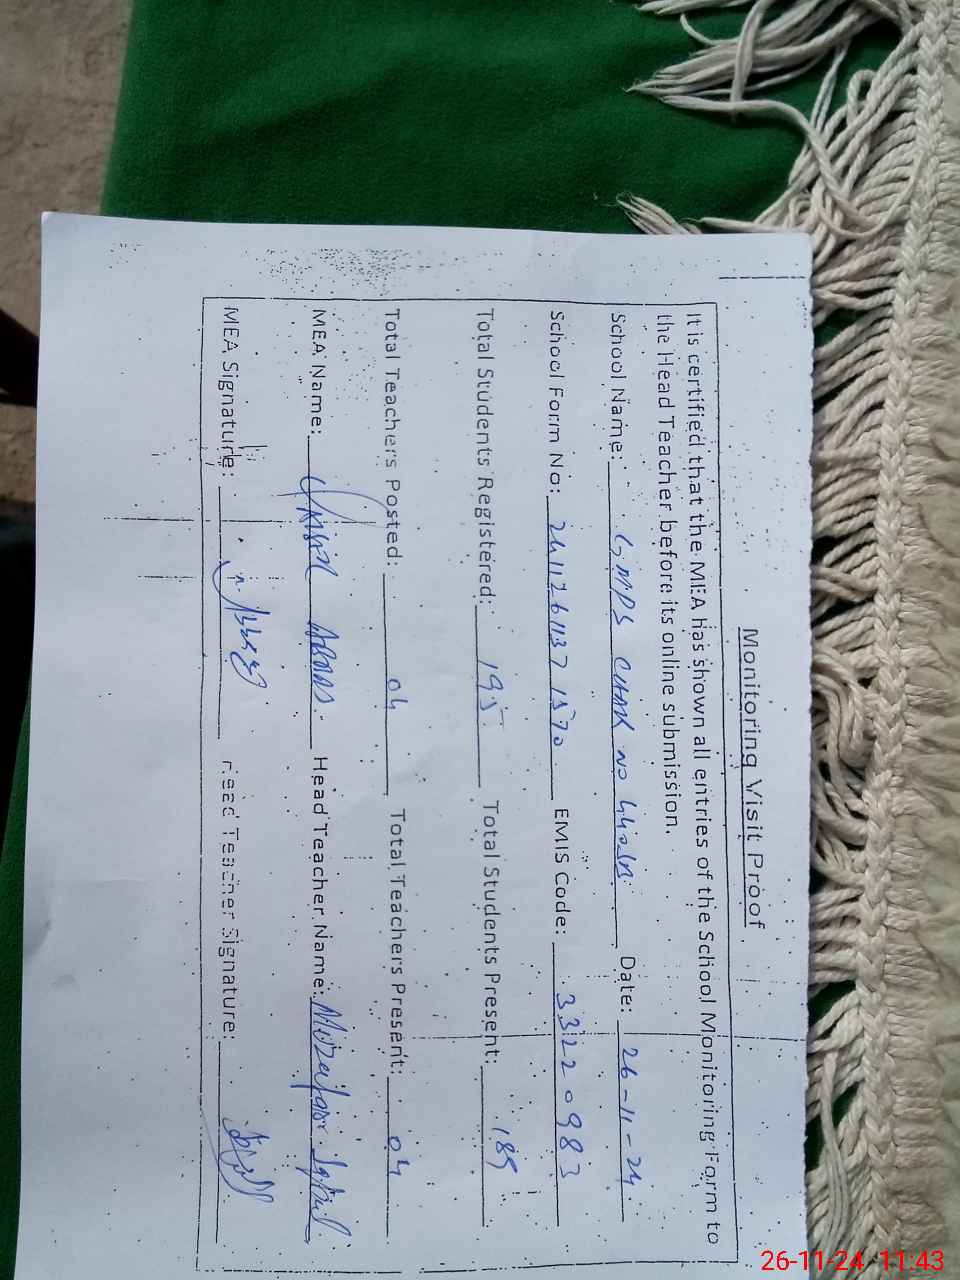 Monitoring Visit Proof
It is certified that the MEA has shown all entries of the School Monitoring Form to
the Head Teacher before its online submission.
School Name: GMPS CHAK NO 440JB Date: 26-11-24
School Form No: 24112611371570 EMIS Code: 33220983
Total Students Registered: 195 Total Students Present: 189
Total Teachers Posted: 04 Total Teachers Present: 04
MEA Name: Abbas Head Teacher Name: Mozafar Iqbal
MEA Signature: Head Teacher Signature:
26-11-24 11:43